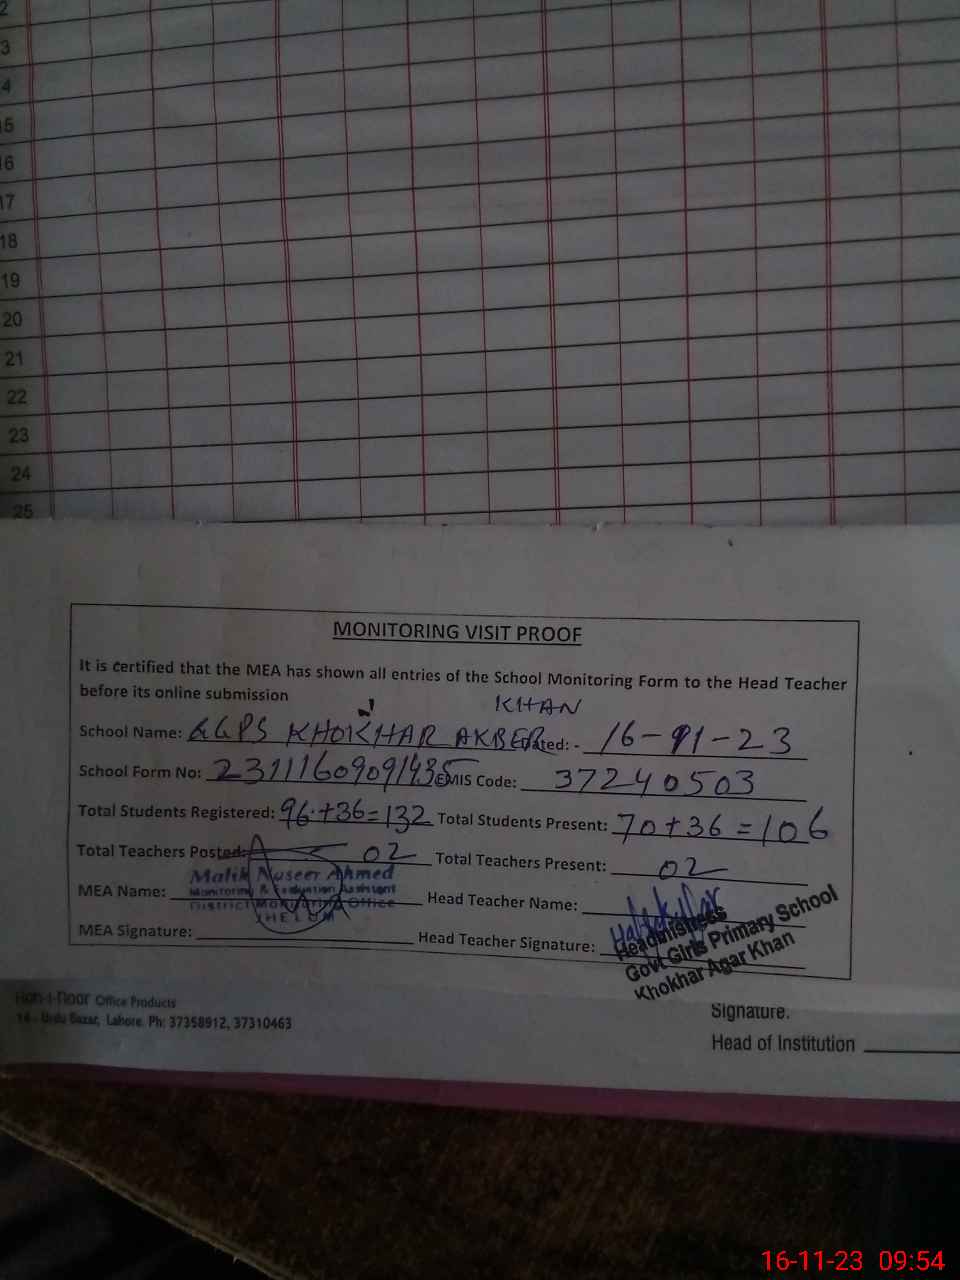 2
3
4
15
16
17
18
19
20
21
22
23
24
25
MONITORING VISIT PROOF
It is certified that the MEA has shown all entries of the School Monitoring Form to the Head Teacher
before its online submission
KHAN
School Name: GGPS KHOKHAR AKBER Dated: - 16-11-23
School Form No: 23111609091435 EMIS Code: 37240503
Total Students Registered: 96+36=132 Total Students Present: 70+36=106
Total Teachers Posted: 02 Total Teachers Present: 02
Malik Nuseer Ahmed
Monitoring & Evaluation Assistent
MEA Name: Head Teacher Name:
District Monitoring Office
JHELUM
MEA Signature: Head Teacher Signature:
Headmistress
Govt Girls Primary School
Khokhar Agar Khan
Office Products
14 - Urdu Bazar, Lahore. Ph: 37358912, 37310463
Signature.
Head of Institution
16-11-23 09:54